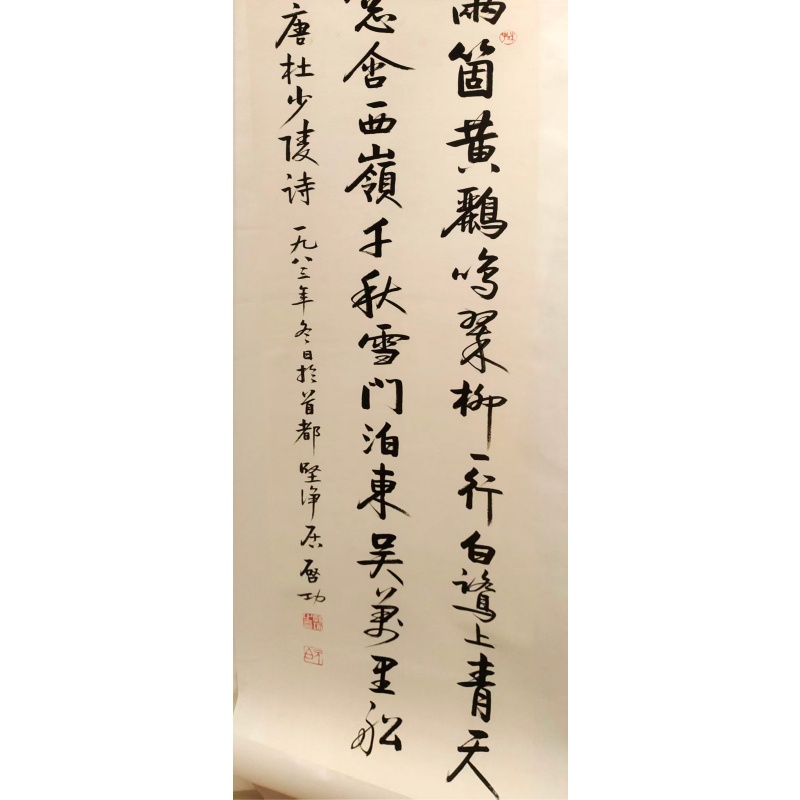 兩箇黄鸝鳴翠柳一行白鷺上青天
窓含西嶺千秋雪門泊東吴萬里船
唐杜少陵诗 一九八三年冬日於首都 堅净居 啓功